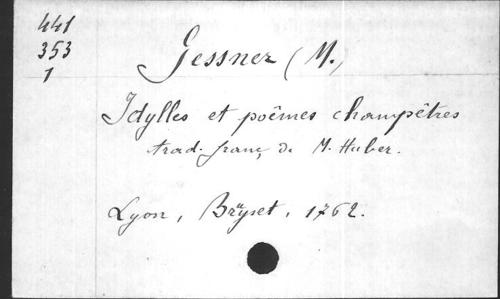 441
353
1
Gessner (M.)
Idylles et poëmes champêtres
trad. franç de M. Huber.
Lyon, Brÿset, 1762.